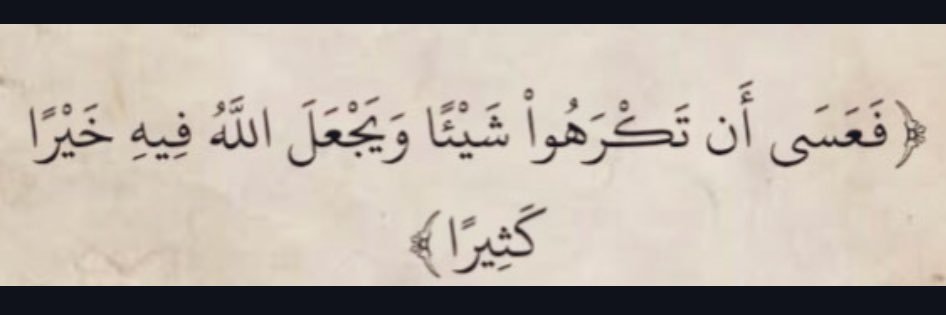 ﴿فَعَسَى أَن تَكْرَهُواْ شَيْئًا وَيَجْعَلَ اللَّهُ فِيهِ خَيْرًا
كَثِيرًا﴾